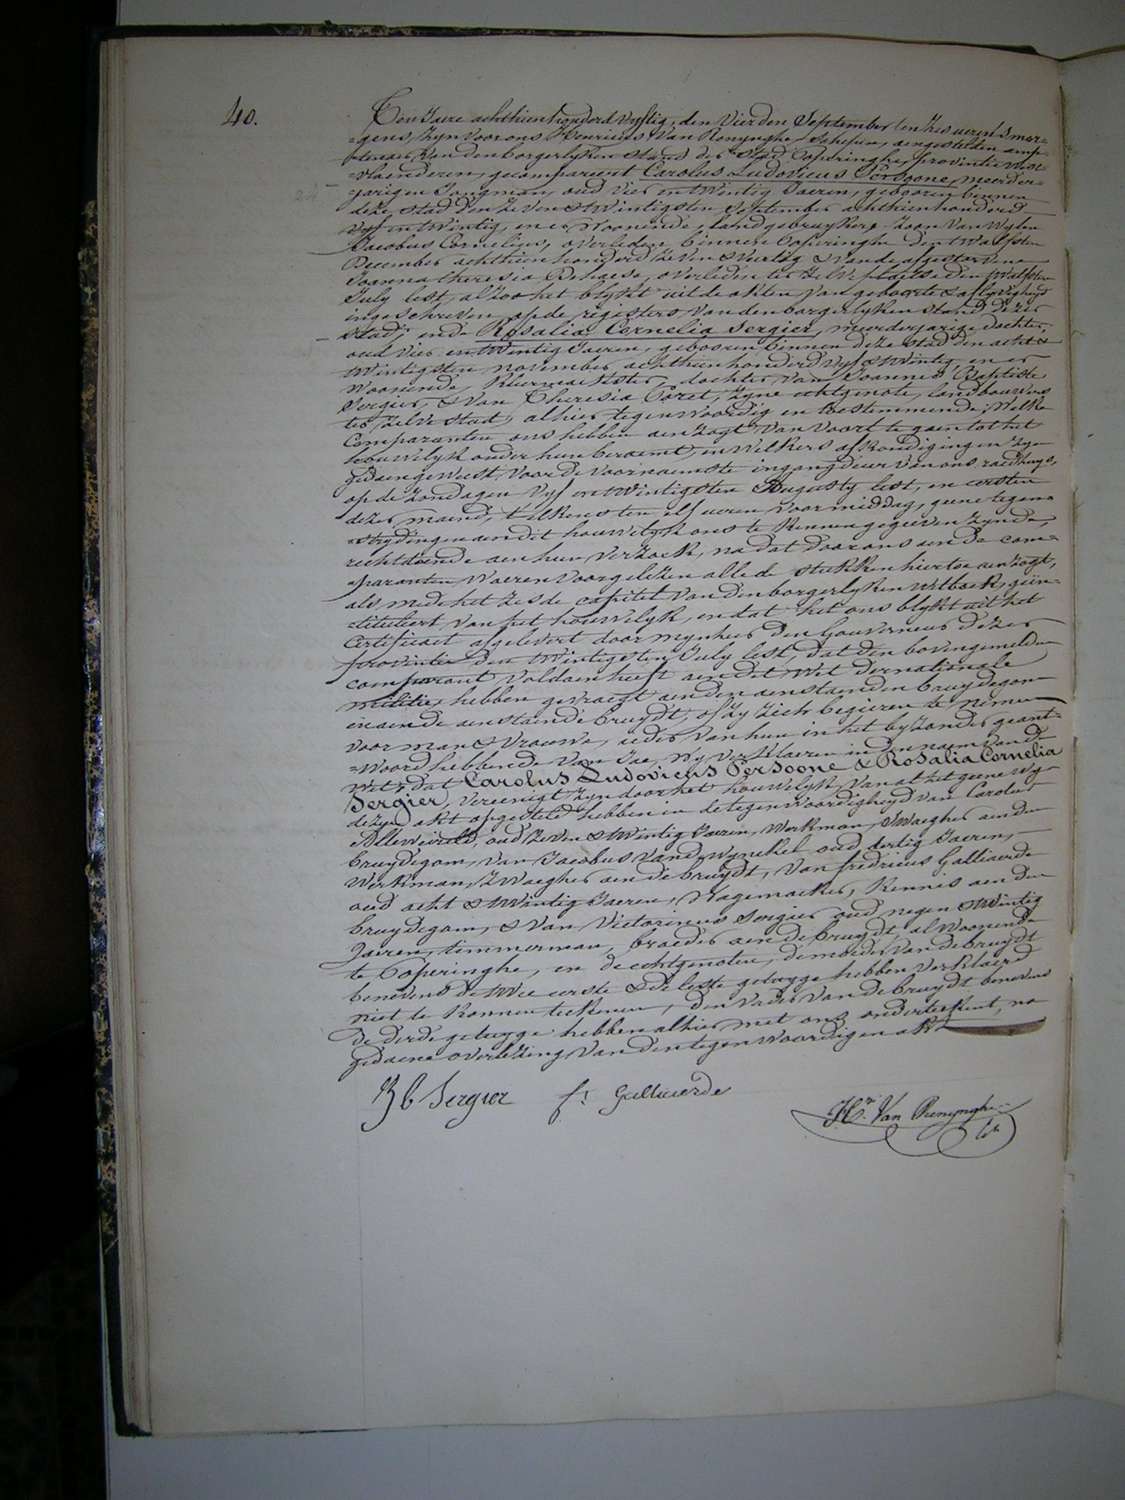 40.
Ten Jaere achthienhonderd vyftig, den vierden September ten zes ueren 's mor=
=gens, zyn voor ons Henricus Van Renynghe, Schepen, aengestelden amp=
=tenaer van den borgerlyken stand der Stad Poperinghe, provintie West=
=vlaenderen, gecompareert Carolus Ludovicus Persoone, meerder=
=jarigen Jongman, oud vier en twintig Jaeren, geboren binnen
deze stad den zeven & twintigsten September achthienhonderd
vyf en twintig, en er woonende, landgebruyker, zoon van wylen
Jacobus Cornelius, overleden binnen Poperinghe den twaelfsten
December achthienhonderd zeven & veertig & van de afgestorvene
Joanna Theresia Behaege, overleden ter zelve plaetse den twelfsten
July lest, alzoo het blykt uit de akten van geboorte & aflyvigheyd
ingeschreven op de registers van den borgerlyken stand dezer
stad; ende Rosalia Cornelia Sergier, meerderjarige dochter,
oud vier en twintig Jaeren, gebooren binnen deze stad den acht &
twintigsten november achthienhonderd vyf & twintig, en er
woonende, dochter van Joannes Baptiste
Sergier & van Theresia Poret, zyne echtgenote, landbouwers
ter zelve stad, alhier tegenwoordig en toestemmende; welke
Comparanten ons hebben aenzogt van voort te gaen tot het
houwelyk onder hun beraemt, en welkers afkondigingen zyn
gedaen geweest voor de voornaemste ingangdeur van ons raedhuys,
op de zondagen vyf en twintigsten Augusty lest, en eersten
dezer maend, telkens ten elf ueren voormiddag, geene tegen=
=strydingen aen dit houwelyk ons te kennen gegeven zynde,
rechtdoende aen hun verzoek, na dat door ons aen de com=
=paranten waeren voorgelezen alle de stukken hiertoe aenzogt,
als mede het zesde capittel van den borgerlyken wetboek, gein=
=tituleert van het houwelyk, en dat het ons blykt uit het
Certificaet afgelevert door mynheer den Gouverneur dezer
provintie den twintigsten July lest, dat den bovengemelden
comparant voldaen heeft aen det wet der nationale
militie, hebben gevraegt aen den aenstaenden bruydegom
en aen de aenstaende bruydt, of zy zich begieren te nemen
voor man & vrouwe, ieder van hun in het byzonder geant=
=woord hebbende van Jae, wy verklaeren in den naem van de
wet, dat Carolus Ludovicus Persoone & Rosalia Cornelia
Sergier, vereenigt zyn door het houwelyk, van al het geene wy
dezen akt opgesteld hebben in de tegenwoordigheyd van Carolus
Alleweireld, oud zeven & twintig Jaeren, werkman, zwaegher aen den
bruydegom, van Jacobus Vandewynckel oud dertig Jaeren,
werkman, zwaegher aen de bruydt, van fredericus Galliaerde
oud acht & twintig Jaeren, Wagemaeker, kennis aen den
bruydegom, & van Victorinus Sergier oud negen & twintig
Jaeren, timmerman, broeder aen de bruydt, al woonende
te Poperinghe, en de echtgenoten, de moeder van de bruydt
benevens de twee eerste & de leste getuyge hebben verklaerd
niet te konnen teekenen, den vader van de bruydt benevens
de derde getuyge hebben alhier met ons onderteekent, na
gedaene overlezing van den tegenwoordigen akt
JB Sergier fr Galliaerde
Hri Van Renynghe